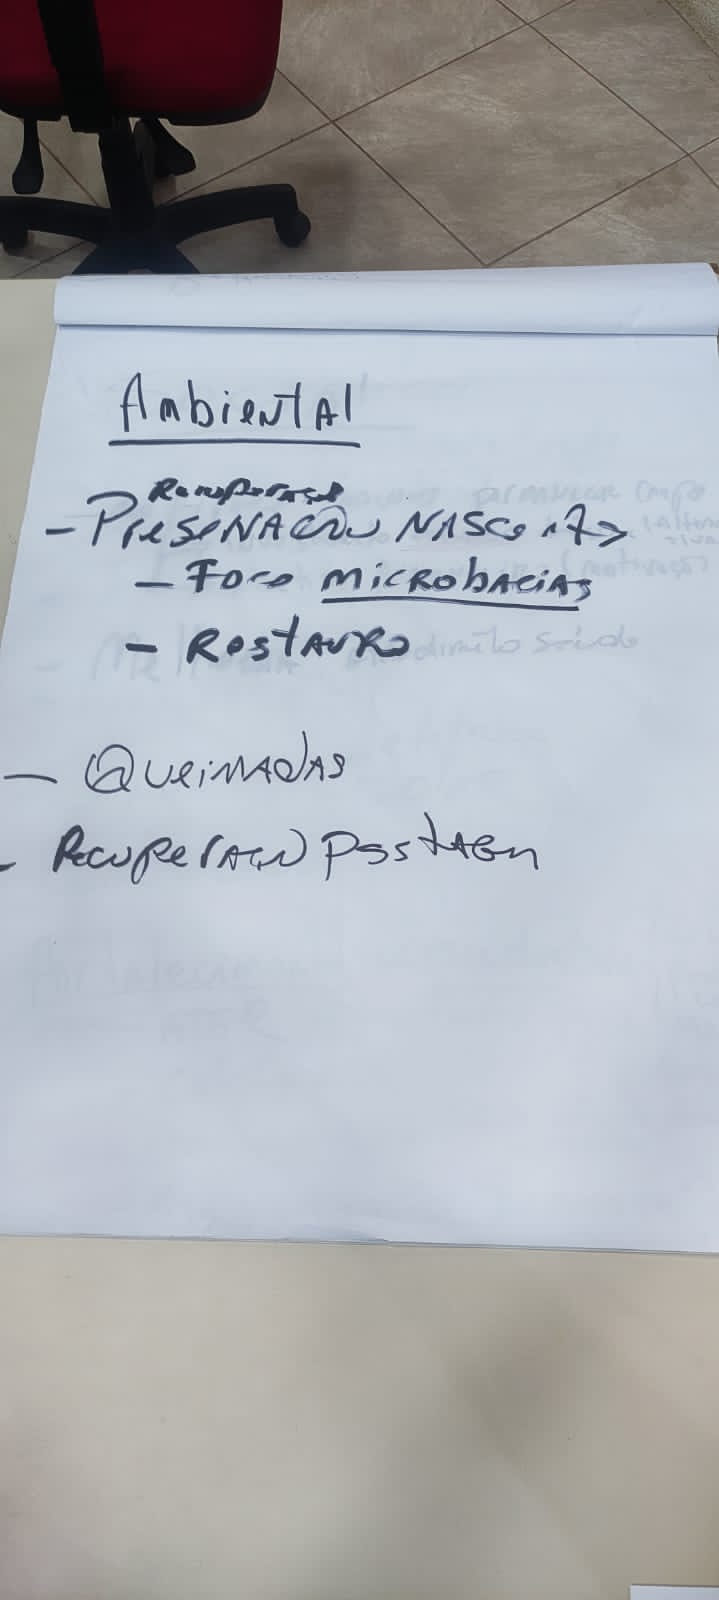 Ambiental
Recuperação
- Preservação Nasc
- Foco microbacias
- Restauro
- Queimadas
- Recuperação pastagem